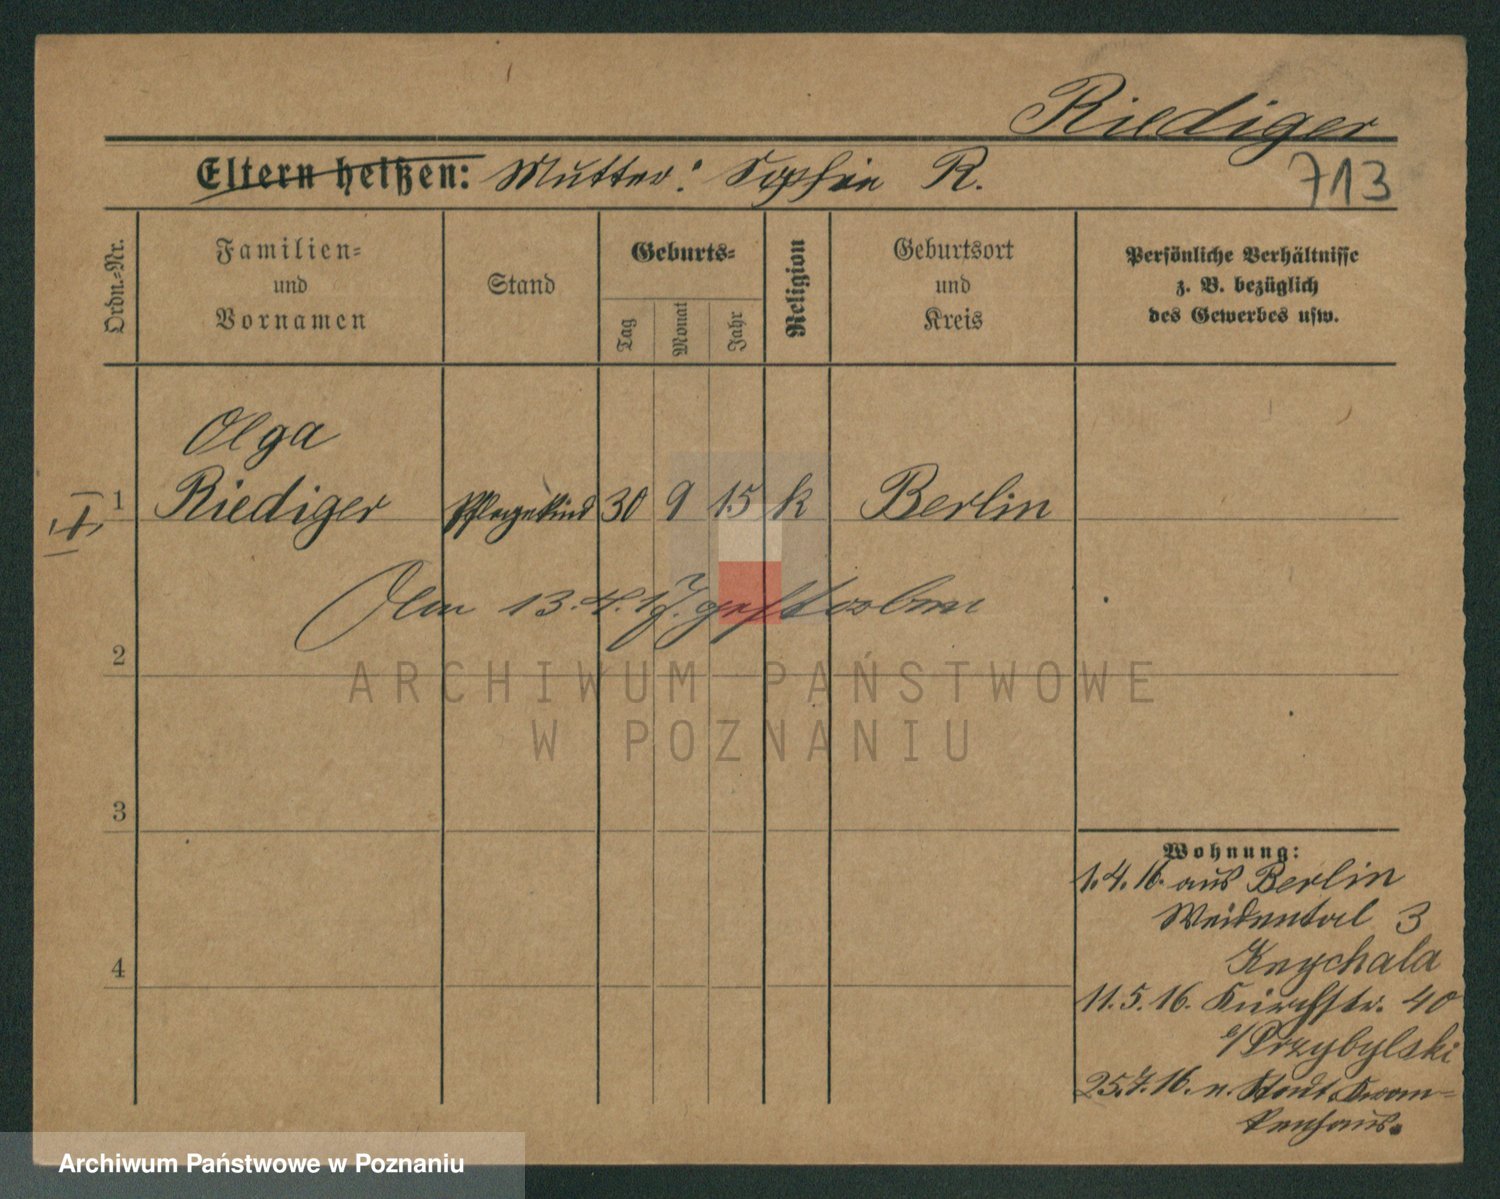 Riediger
713
Eltern heißen: Mutter: Sophie R.
Ordn.-Nr.
Familien- und Vornamen
Stand
Geburts-
Tag
Monat
Jahr
Religion
Geburtsort und Kreis
Persönliche Verhältnisse
z. B. bezüglich
des Gewerbes usw.
Olga
1 Riediger Pflegekind 30 9 15 k Berlin
Am 13.4.17. gestorben
2
3
4
Wohnung:
1.4.16. aus Berlin
Weidental 3
Krychala
11.5.16. Kirchstr. 40
b/Przybylski
25.7.16. n. Stadt. Kran-
kenhaus.
ARCHIWUM PAŃSTWOWE
W POZNANIU
Archiwum Państwowe w Poznaniu